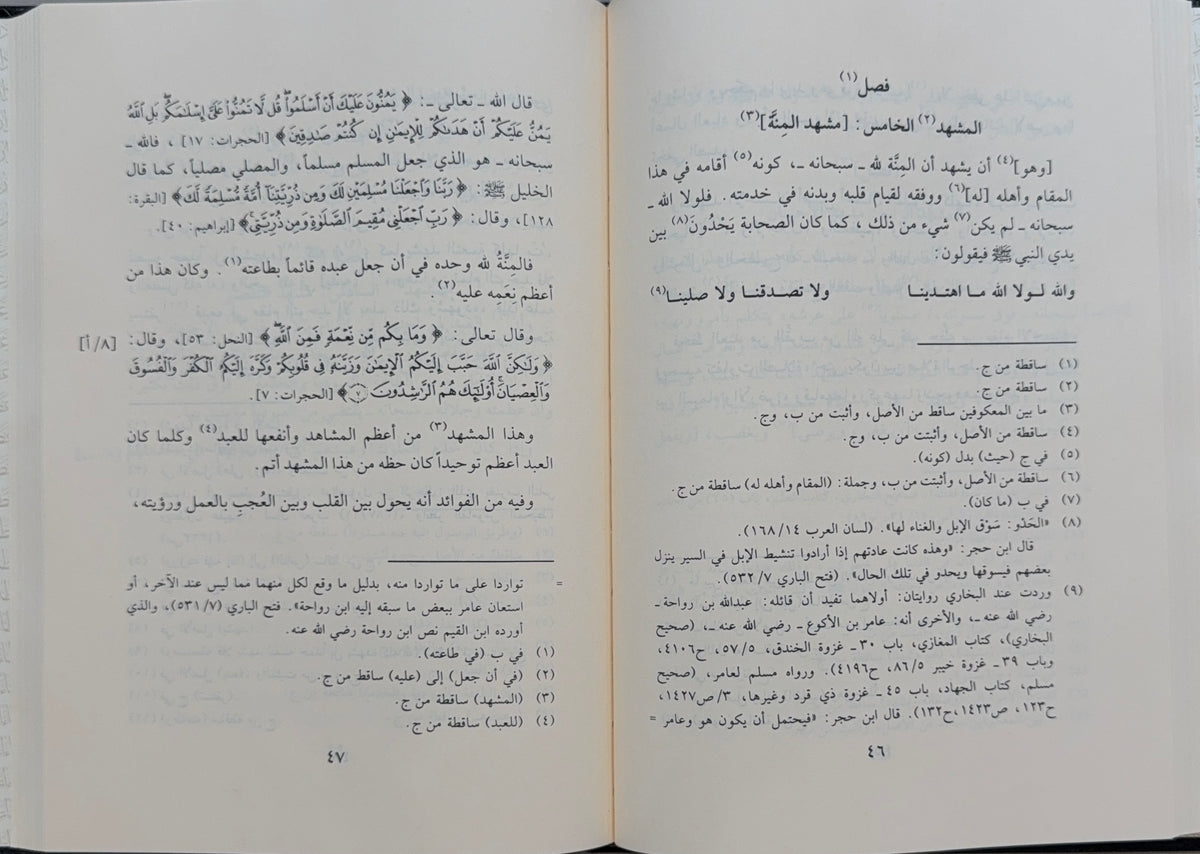 فصل(١)
المشهد(٢) الخامس: [مشهد المِنَّة](٣)
[وهو](٤) أن يشهد أن المِنَّة لله ـ سبحانه ـ، كونه(٥) أقامه في هذا
المقام وأهله [له](٦) ووفقه لقيام قلبه وبدنه في خدمته. فلولا الله ـ
سبحانه ـ لم يكن(٧) شيء من ذلك، كما كان الصحابة يَحْدُونَ(٨) بين
يدي النبي ﷺ فيقولون:
والله لـولا الله مـا اهتدينـا ولا تصدقنـا ولا صلينـا(٩)
(١) ساقطة من ج.
(٢) ساقطة من ج.
(٣) ما بين المعكوفين ساقط من الأصل، وأثبت من ب، وج.
(٤) ساقطة من الأصل، وأثبتت من ب، وج.
(٥) في ج (حيث) بدل (كونه).
(٦) ساقطة من الأصل، وأثبتت من ب، وجملة: (المقام وأهله له) ساقطة من ج.
(٧) في ب (ما كان).
(٨) «الحَدْو: سَوْق الإبل والغناء لها». (لسان العرب ١٦٨/١٤).
قال ابن حجر: «وهذه كانت عادتهم إذا أرادوا تنشيط الإبل في السير ينزل
بعضهم فيسوقها ويحدو في تلك الحال». (فتح الباري ٥٣٢/٧).
(٩) وردت عند البخاري روايتان: أولاهما تفيد أن قائله: عبدالله بن رواحة ـ
رضي الله عنه ـ، والأخرى أنه: عامر بن الأكوع ـ رضي الله عنه ـ، (صحيح
البخاري)، كتاب المغازي، باب ٣٠ ـ غزوة الخندق، ٥٧/٥، ح٤١٠٦،
وباب ٣٩ ـ غزوة خيبر ٨٦/٥، ح٤١٩٦). ورواه مسلم لعامر، (صحيح
مسلم، كتاب الجهاد، باب ٤٥ ـ غزوة ذي قرد وغيرها، ٣/ص١٤٢٧،
ح١٢٣، ص١٤٢٣، ح١٣٢). قال ابن حجر: «فيحتمل أن يكون هو وعامر =
٤٦
قال الله ـ تعالى ـ: ﴿ يَمُنُّونَ عَلَيْكَ أَنْ أَسْلَمُوا۟ قُل لَّا تَمُنُّوا۟ عَلَىَّ إِسْلَـٰمَكُم بَلِ ٱللَّهُ
يَمُنُّ عَلَيْكُمْ أَنْ هَدَىٰكُمْ لِلْإِيمَـٰنِ إِن كُنتُمْ صَـٰدِقِينَ ﴾ [الحجرات: ١٧]، فالله ـ
سبحانه ـ هو الذي جعل المسلم مسلماً، والمصلي مصلياً، كما قال
الخليل ﷺ: ﴿ رَبَّنَا وَٱجْعَلْنَا مُسْلِمَيْنِ لَكَ وَمِن ذُرِّيَّتِنَآ أُمَّةً مُّسْلِمَةً لَّكَ ﴾ [البقرة:
١٢٨]، وقال: ﴿ رَبِّ ٱجْعَلْنِى مُقِيمَ ٱلصَّلَوٰةِ وَمِن ذُرِّيَّتِى ﴾ [إبراهيم: ٤٠].
فالمِنَّةُ لله وحده في أن جعل عبده قائماً بطاعته(١). وكان هذا من
أعظم نِعَمِه عليه(٢).
وقال تعالى: ﴿ وَمَا بِكُم مِّن نِّعْمَةٍ فَمِنَ ٱللَّهِ ﴾ [النحل: ٥٣]، وقال: [٨/أ]
﴿ وَلَـٰكِنَّ ٱللَّهَ حَبَّبَ إِلَيْكُمُ ٱلْإِيمَـٰنَ وَزَيَّنَهُۥ فِى قُلُوبِكُمْ وَكَرَّهَ إِلَيْكُمُ ٱلْكُفْرَ وَٱلْفُسُوقَ
وَٱلْعِصْيَانَ أُو۟لَـٰٓئِكَ هُمُ ٱلرَّٰشِدُونَ ٧ ﴾ [الحجرات: ٧].
وهذا المشهد(٣) من أعظم المشاهد وأنفعها للعبد(٤) وكلما كان
العبد أعظم توحيداً كان حظه من هذا المشهد أتم.
وفيه من الفوائد أنه يحول بين القلب وبين العُجبِ بالعمل ورؤيته،
= تواردا على ما تواردا منه، بدليل ما وقع لكل منهما مما ليس عند الآخر، أو
استعان عامر ببعض ما سبقه إليه ابن رواحة». فتح الباري (٥٣١/٧)، والذي
أورده ابن القيم نص ابن رواحة رضي الله عنه.
(١) في ب (في طاعته).
(٢) (في أن جعل) إلى (عليه) ساقط من ج.
(٣) (المشهد) ساقطة من ج.
(٤) (للعبد) ساقطة من ج.
٤٧